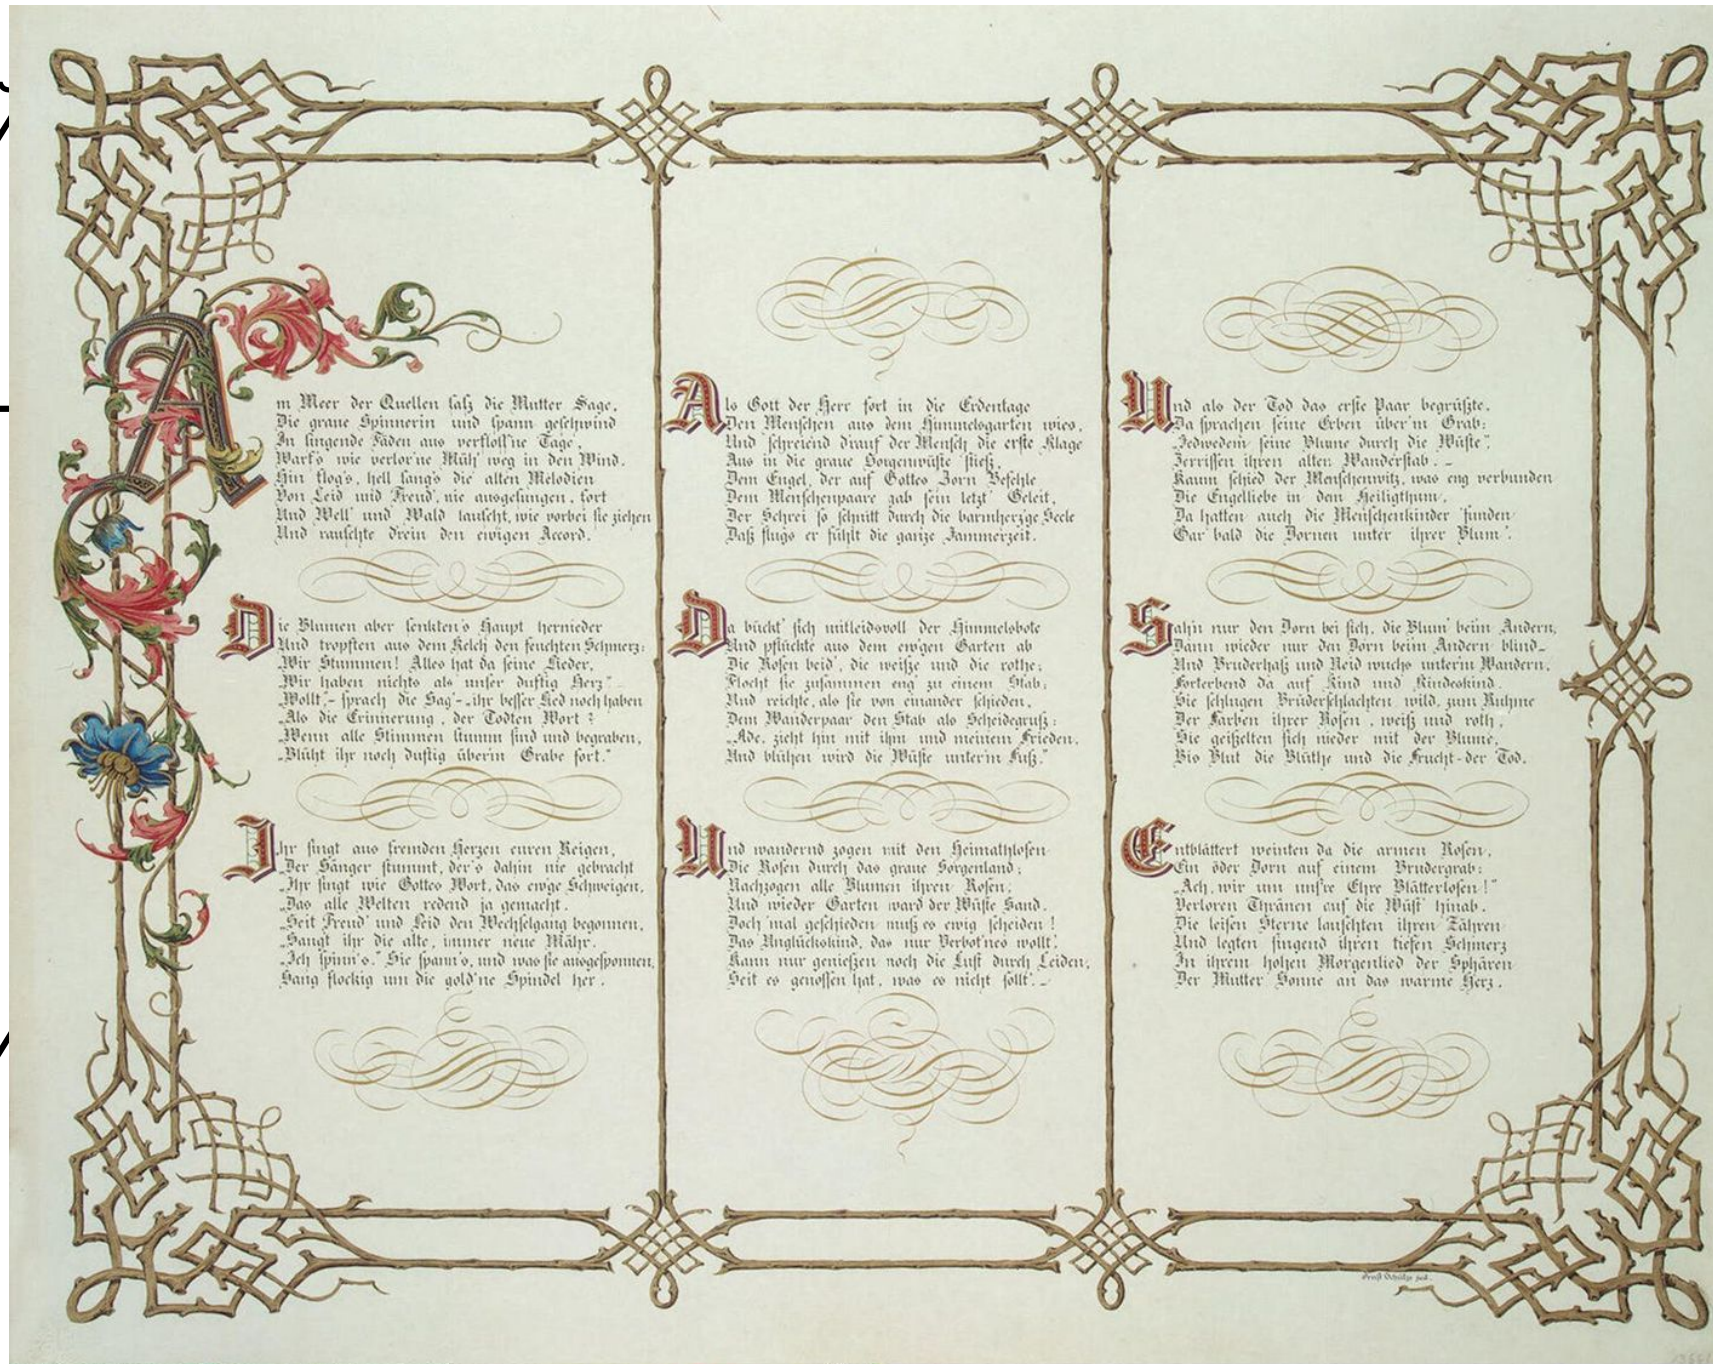 Am Meer der Quellen saß die Mutter Sage,
Die graue Spinnerin und spann geschwind
In singende Fäden aus verfloss'ne Tage,
Warf's wie verlor'ne Müh' weg in den Wind.
Hin flog's, hell sang's die alten Melodien
Von Leid und Freud', nie ausgesungen, fort
Und Well' und Wald lauscht, wie vorbei sie ziehen
Und rauschte drein den ewigen Accord.
Die Blumen aber senkten's Haupt hernieder
Und tropften aus dem Kelch den feuchten Schmerz:
„Wir Stummen! Alles hat da seine Lieder,
„Wir haben nichts als unser duftig Herz" –
„Wollt", – sprach die Sag' – „ihr besser Lied noch haben
„Als die Erinnerung, der Todten Wort?
„Wenn alle Stimmen stumm sind und begraben,
„Blüht ihr noch duftig über'm Grabe fort."
Ihr singt aus fremden Herzen euren Reigen,
„Der Sänger stummt, der's dahin nie gebracht
„Ihr singt wie Gottes Wort, das ew'ge Schweigen,
„Das alle Welten redend ja gemacht.
„Seit Freud' und Leid den Wechselgang begonnen,
„Sangt ihr die alte, immer neue Mähr.
„Ich spinn's." Sie spann's, und was sie ausgesponnen,
Sang flockig um die gold'ne Spindel her.
Als Gott der Herr fort in die Erdentage
Den Menschen aus dem Himmelsgarten wies,
Und schreiend drauf der Mensch die erste Klage
Aus in die graue Sorgenwüste stieß,
Dem Engel, der auf Gottes Zorn Befehle
Dem Menschenpaare gab sein letzt' Geleit,
Der Schrei so schnitt durch die barmherz'ge Seele
Daß flugs er fühlt die ganze Jammerzeit.
Da bückt' sich mitleidsvoll der Himmelsbote
Und pflückte aus dem ew'gen Garten ab
Die Rosen beid', die weiße und die rothe;
Flocht sie zusammen eng' zu einem Stab;
Und reichte, als sie von einander schieden,
Dem Wanderpaar den Stab als Scheidegruß:
„Ade, zieht hin mit ihm und meinem Frieden,
Und blühen wird die Wüste unter'm Fuß."
Und wandernd zogen mit den Heimathlosen
Die Rosen durch das graue Sorgenland;
Nachzogen alle Blumen ihren Rosen,
Und wieder Garten ward der Wüste Sand.
Doch 'mal geschieden muß es ewig scheiden!
Das Unglückskind, das nur Verbot'nes wollt',
Kann nur genießen noch die Lust durch Leiden,
Seit es genossen hat, was es nicht sollt'. –
Und als der Tod das erste Paar begrüßte,
Da sprachen seine Erben über'm Grab:
„Jedwedem seine Blume durch die Wüste",
Zerrissen ihren alten Wanderstab. –
Kaum schied der Menschenwitz, was eng verbunden
Die Engelliebe in dem Heiligthum,
Da hatten auch die Menschenkinder funden
Gar bald die Dornen unter ihrer Blum'.
Sah'n nur den Dorn bei sich, die Blum' beim Andern,
Dann wieder nur den Dorn beim Andern blind –
Und Bruderhaß und Neid wuchs unter'm Wandern,
Forterbend da auf Kind und Kindeskind.
Sie schlugen Brüderschlachten wild, zum Ruhme
Der Farben ihrer Rosen, weiß und roth,
Sie geißelten sich nieder mit der Blume,
Bis Blut die Blüthe und die Frucht – der Tod.
Entblättert weinten da die armen Rosen,
Ein öder Dorn auf einem Brudergrab:
„Ach, wir um uns're Ehre Blätterlosen!"
Verloren Thränen auf die Wüst' hinab.
Die leisen Sterne lauschten ihren Zähren
Und legten singend ihren tiefen Schmerz
In ihrem hohen Morgenlied der Sphären
Der Mutter Sonne an das warme Herz.
Ernst Schütze